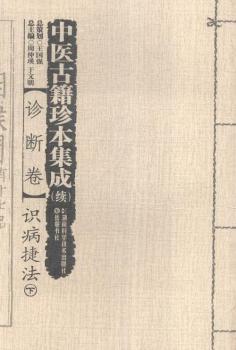 中医古籍珍本集成
(续)
总策划◎王国强
总主编◎周仲瑛 于文明
【诊断卷】
识病捷法
下
湖南科学技术出版社
岳麓书社